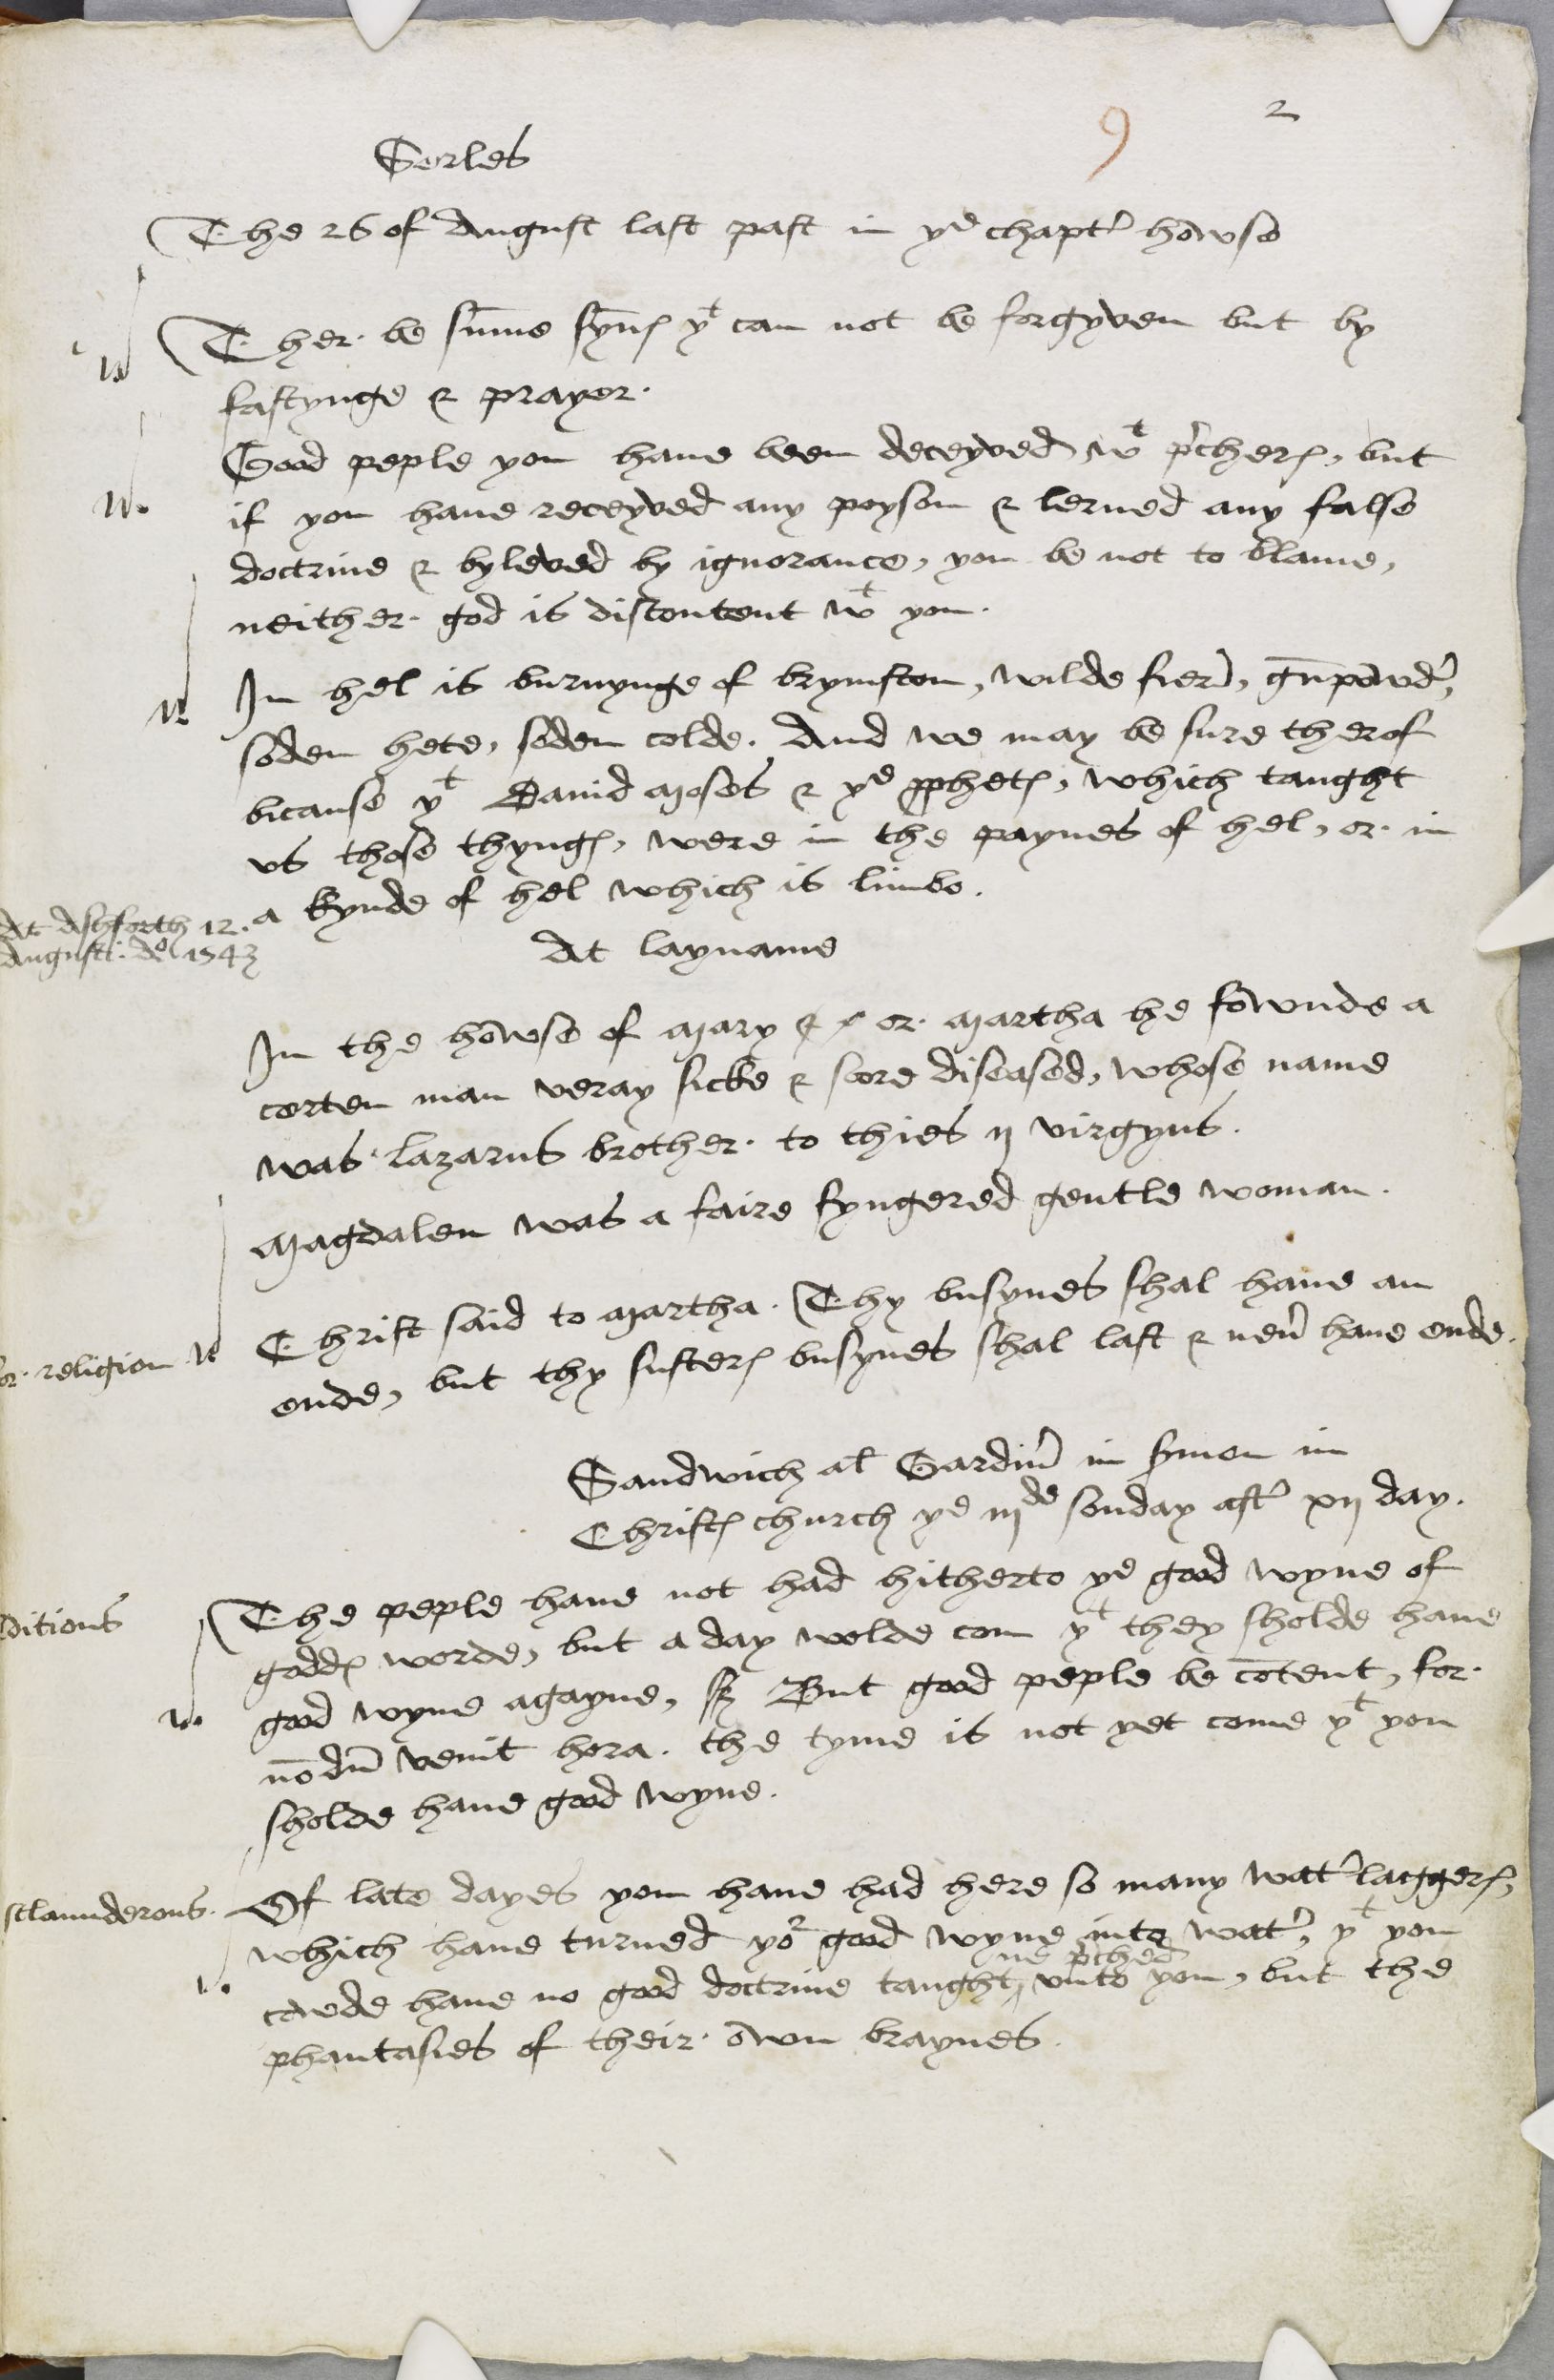 9 2
Serles
The 26 of August last past in yͤ chapt' howse
Ther be sūme synꝭ yͭ can not be forgyven but by
fastynge & prayer.
Good peple you haue been deceyved wͭ p'cherꝭ, but
if you haue receyved any poyson & lerned any false
doctrine & byleved by ignorance, you be not to blame,
neither god is discontent wͭ you.
In hel is burnynge of brymston, wilde fier, gūpowd',
soden hete, soden colde. And we may be sure therof
bicause yͭ Dauid Moses & yͤ ꝓphetꝭ, which taught
vs those thyngꝭ, were in the paynes of hel, or in
a kynde of hel which is limbo.
At Ashforth 12.
Augusti. A° 1543
At layname
In the howse of Mary & or Martha he fownde a
certen man veray sicke & soore diseased, whose name
was lazarus brother to thies ij virgyns.
Magdalen was a faire fyngered gentle woman.
Christ said to Martha. Thy busynes shal haue an
ende, but thy susterꝭ busynes shal last & neu' haue ende.
or religion
Sandwich al Gardin' in s'mon in
Christꝭ church yͤ iijde sonday aft' xij day.
The peple haue not had hitherto yͤ good wyne of
ditions
goddꝭ worde, but a day wolde com yͭ they sholde haue
good wyne agayne, But good peple be cōtent, for
nōdū venit hora. the tyme is not yet come yͭ you
sholde haue good wyne.
sclaunderous.
Of late dayes you haue had here so many wat' laggerꝭ,
which haue turned yoʳ good wyne into wat', yͭ you
ne p'ched
cowde haue no good doctrine taught vnto you, but the
phantasies of their own braynes.